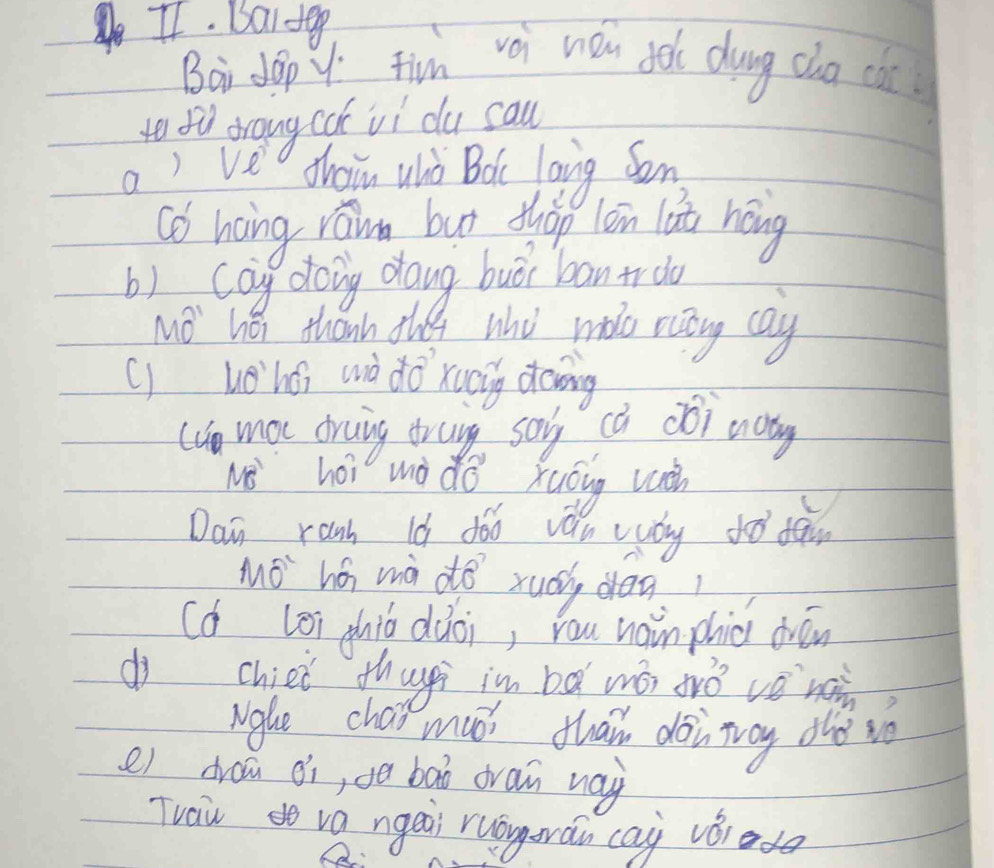 II. Bài tập
Bài tập 1: tìm và nêu tác dụng của các
từ trong các ví dụ sau
a) Về thăm nhà Bác làng Sen
Có hàng râm bụt thắp lên lửa hồng
b) Cày đồng đang buổi ban trưa
Mồ hôi thánh thót như mưa ruộng cày
c) Mồ hôi mà đổ xuống đồng
Lúa mọc trùng trùng sáng cả đồi nương
Mồ hôi mà đổ xuống vườn
Dâu xanh lá tốt vấn vương tơ tằm
Mồ hôi mà đổ xuống đầm
Cá lội phía dưới, rau nằm phía trên
d) Chiếc thuyền im bến mỏi trở về nằm
Nghe chất muối thấm dần trong thớ vỏ
e) trâu ơi, ta bảo trâu này
Trâu ra ngoài ruộng trâu cày với ta